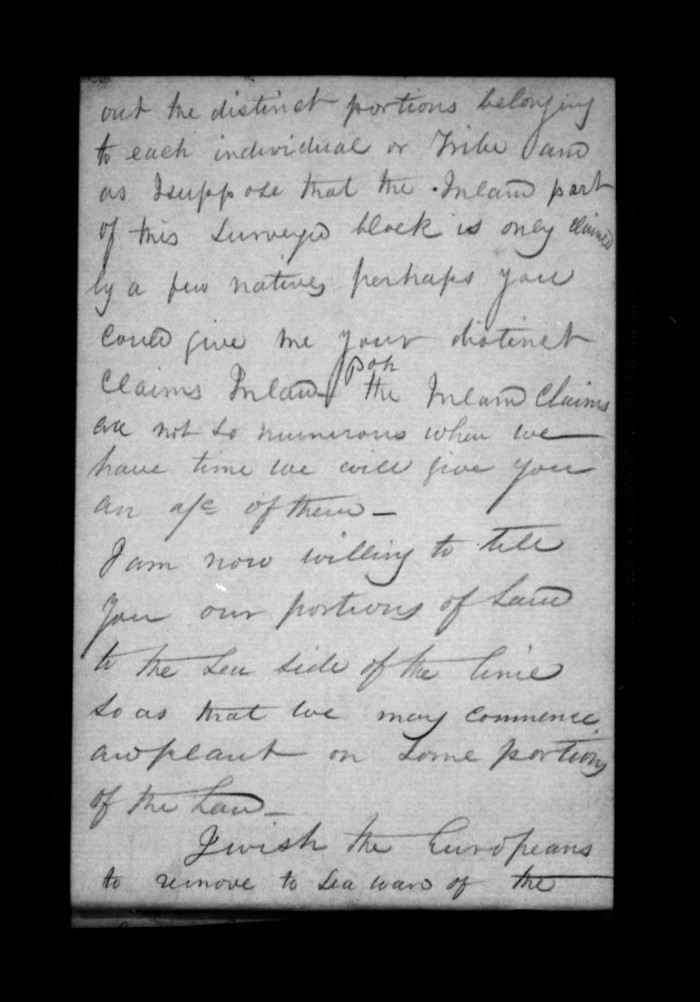 out the distinct portions belonging
to each individual or Tribe and
as I suppose that the Inland part
of this Surveyed block is only claimed
by a few natives perhaps you
could give me your distinct
Claims Inland the Inland Claims
are not so numerous when we
have time we will give you
an a/c of them —
I am now willing to tell
you our portions of Land
to the Sea side of the line
so as that we may commence
and plant on some portions
of the Land —
I wish the Europeans
to remove to Sea ward of the